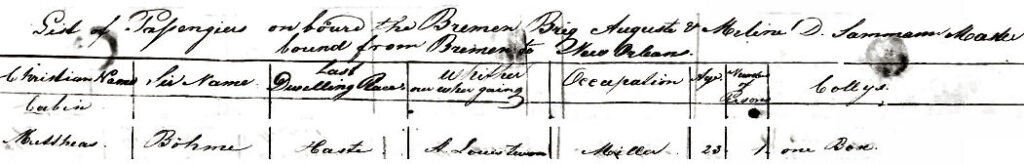 List of Passengers on board the Bremen Brig Auguste & Meline D. Sammann Master
bound from Bremen to New Orleans.
Christian Name Sir Name Last Dwelling Place Whither now when going Occupation Age Number of Persons Collys
Cabin
Matthias Böhme Haste St. Louis Miller 23 1 one Box